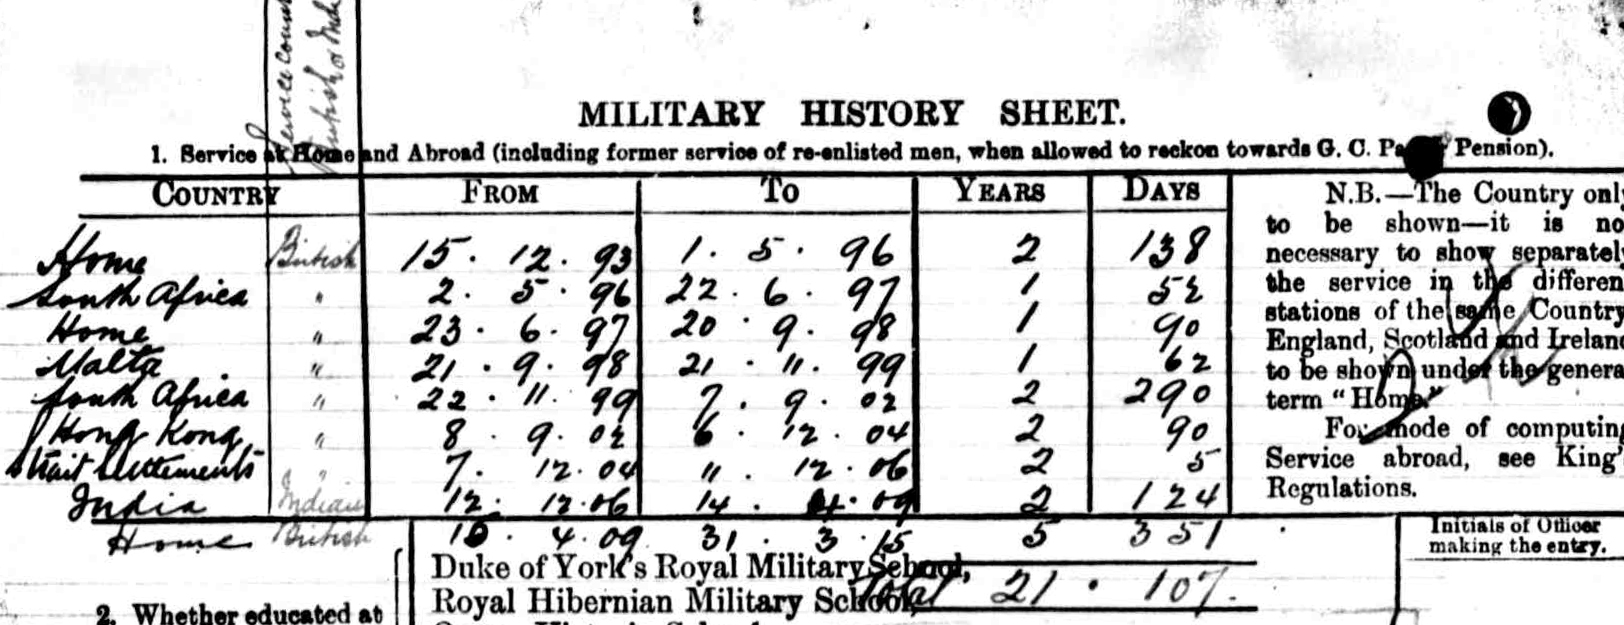 Service count
British or Ind
MILITARY HISTORY SHEET.
1. Service at Home and Abroad (including former service of re-enlisted men, when allowed to reckon towards G. C. Pay Pension).
COUNTRY FROM TO YEARS DAYS
Home British 15 . 12 . 93 1 . 5 . 96 2 138
South Africa " 2 . 5 . 96 22 . 6 . 97 1 52
Home " 23 . 6 . 97 20 . 9 . 98 1 90
Malta " 21 . 9 . 98 21 . 11 . 99 1 62
South Africa " 22 . 11 . 99 7 . 9 . 02 2 290
Hong Kong " 8 . 9 . 02 6 . 12 . 04 2 90
Strait Settlements " 7 . 12 . 04 11 . 12 . 06 2 5
India Indian 12 . 12 . 06 14 . 4 . 09 2 124
Home British 15 . 4 . 09 31 . 3 . 15 5 351
Total 21 . 107
N.B.—The Country onl
to be shown—it is no
necessary to show separatel
the service in the differen
stations of the same Country
England, Scotland and Irelan
to be shown under the genera
term "Home."
For mode of computin
Service abroad, see King'
Regulations.
Initials of Officer
making the entry.
2. Whether educated at
Duke of York's Royal Military School,
Royal Hibernian Military School,